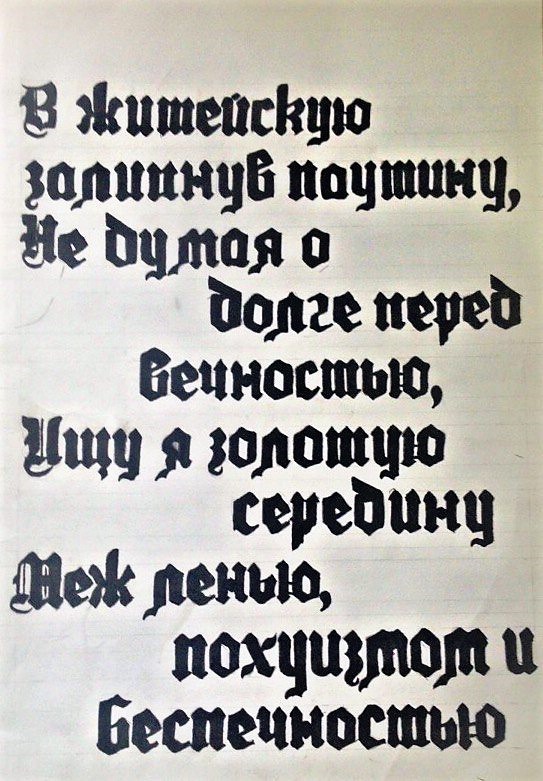 В житейскую
залипнув паутину,
Не думая о
долге перед
вечностью,
Ищу я золотую
середину
Меж ленью,
похуизмом и
беспечностью